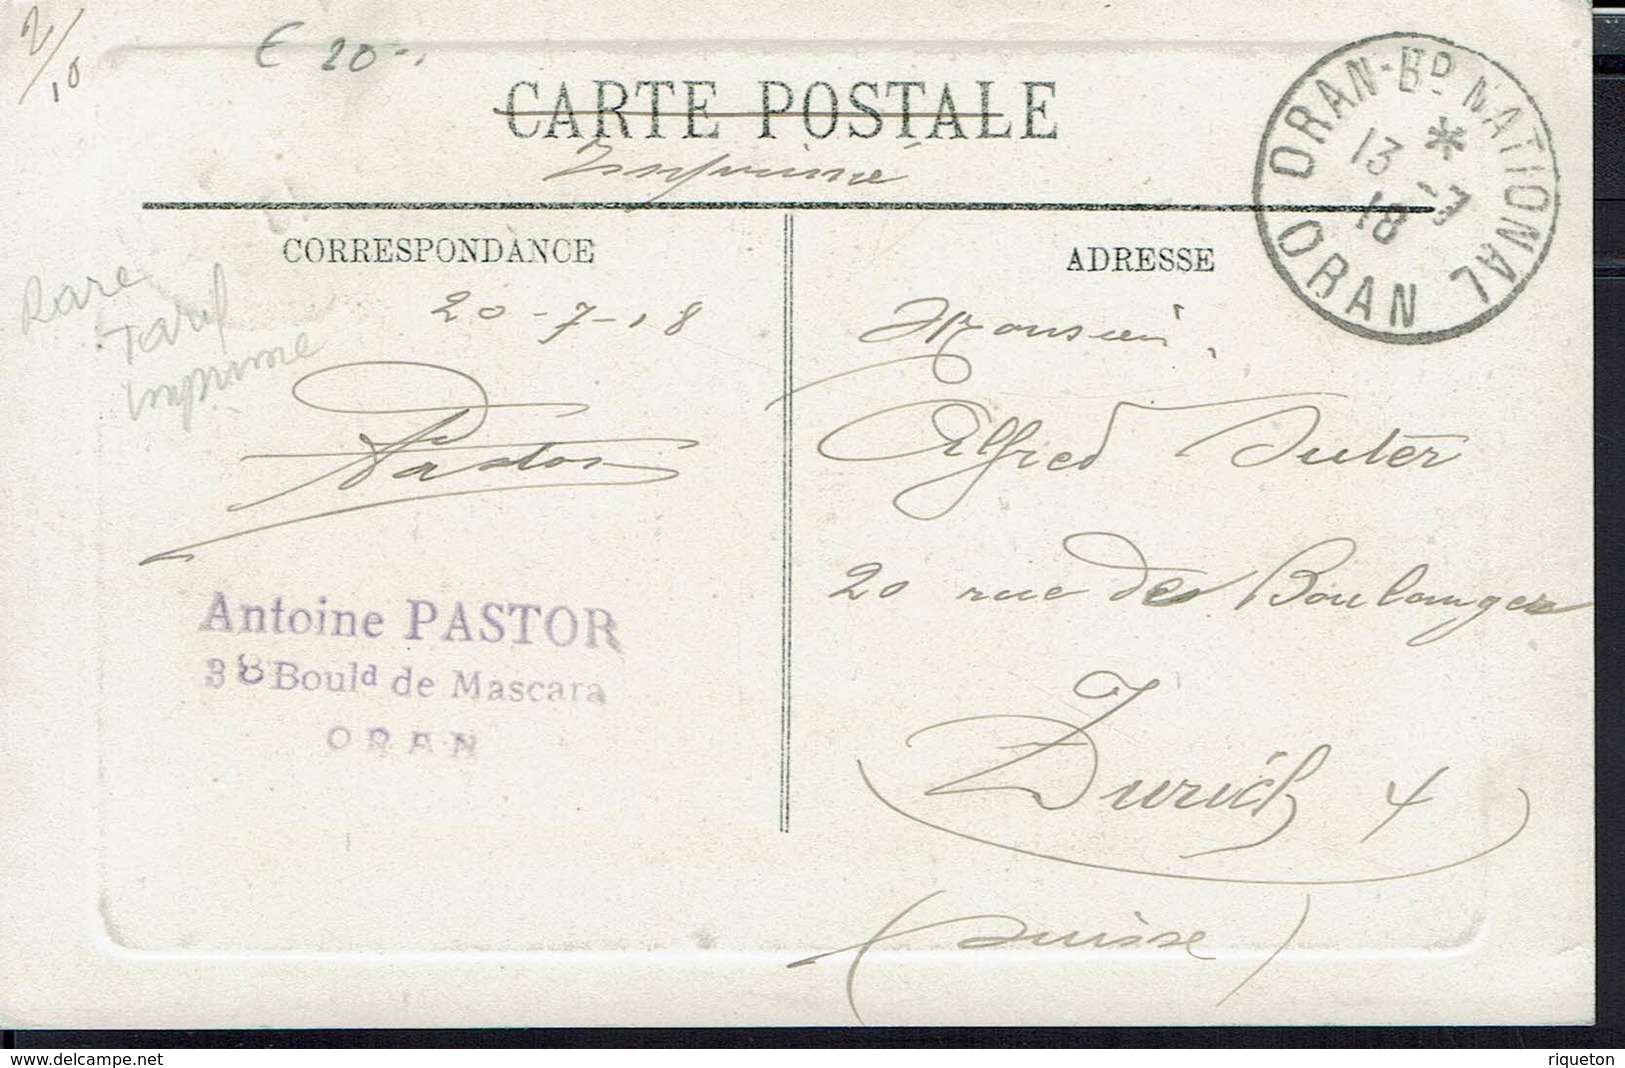 2/10
€ 20-.
CARTE POSTALE
Imprimé
ORAN-Bᴅ NATIONAL
*
13 -7
18
ORAN
CORRESPONDANCE
ADRESSE
Rare
Tarif
imprime
20-7-18
Pastor
Antoine PASTOR
38 Bould de Mascara
ORAN
Monsieur
Alfred Suter
20 rue des Boulanger
Zurich 4
(Suisse)
www.delcampe.net
riqueton